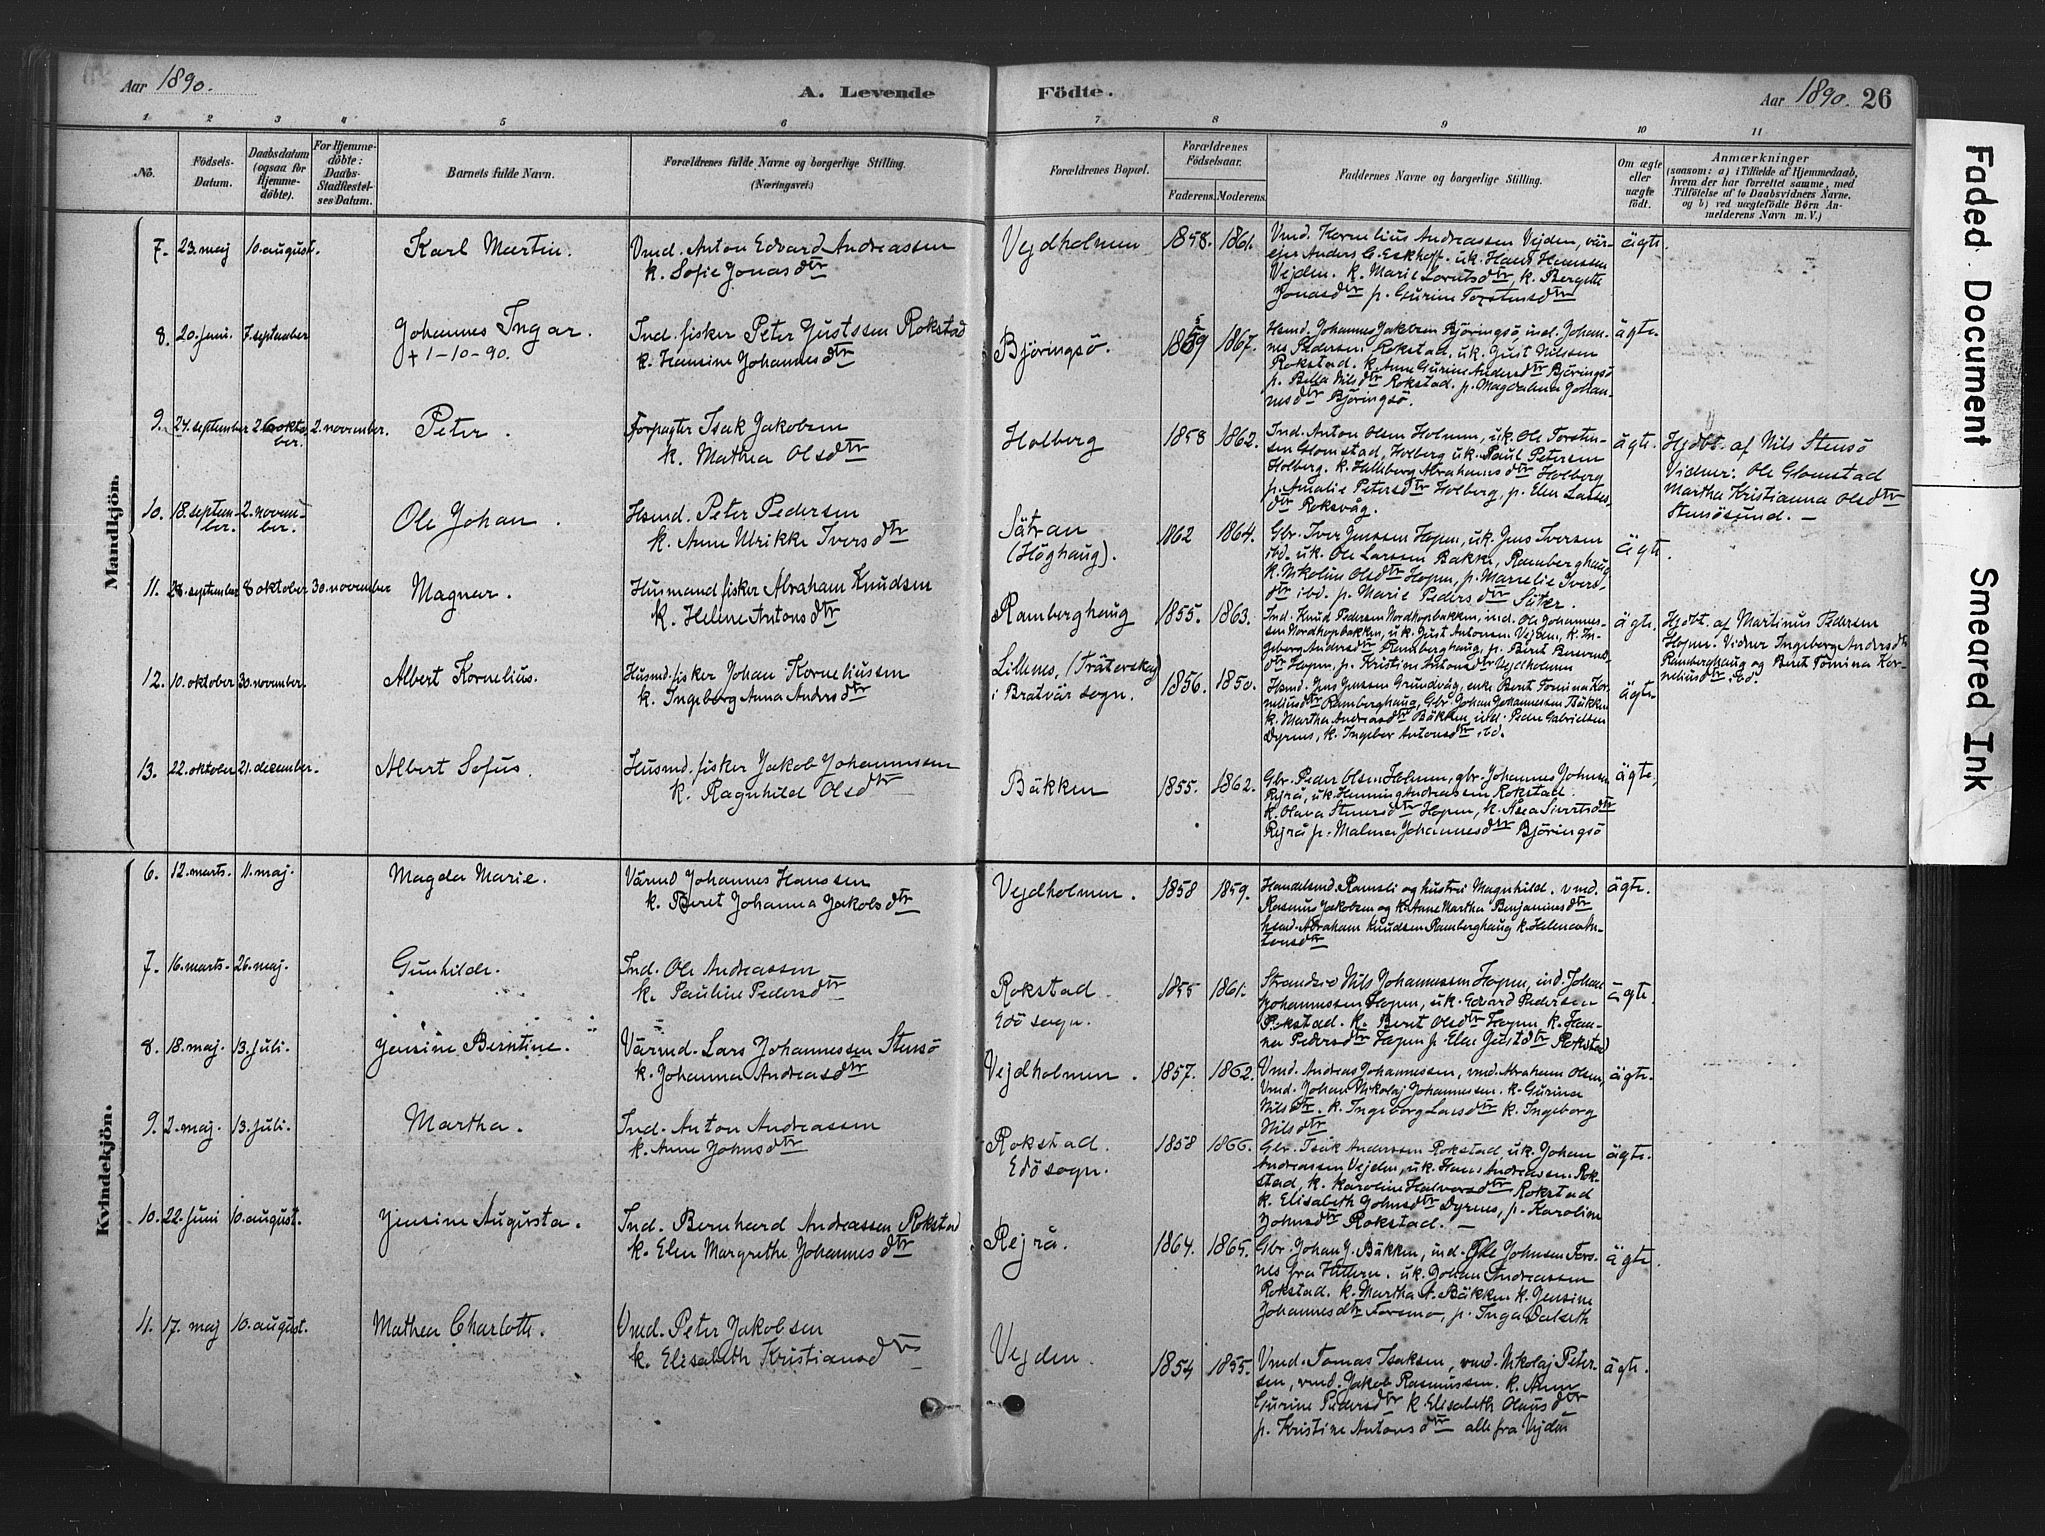 Aar 1890.
A. Levende
Födte.
Aar 1890. 26
1 2 3 4 5 6 7 8 9 10 11
No.
Födsels-Datum.
Daabsdatum (ogsaa for Hjemmedöbte).
For Hjemmedöbte: Daabs-Stadfæstelses Datum.
Barnets fulde Navn.
Forældrenes fulde Navne og borgerlige Stilling.
(Næringsvei.)
Forældrenes Bopæl.
Forældrenes Födselsaar.
Faderens. Moderens.
Faddernes Navne og borgerlige Stilling.
Om ægte eller uægte födt.
Anmærkninger
(saasom: a) i Tilfælde af Hjemmedaab,
hvem der har forrettet samme, med
Tilföielse af to Daabsvidners Navne.
og b) ved uægtefödte Börn Anmelderens Navn m. V.)
Mandkjön.
7. 23. maj 10. august. Karl Martin.
Vmd. Anton Edvard Andreassen
k. Sofie Jonasdtr
Vejdholmen 1858. 1861.
Vmd. Kornelius Andreassen Vejden, vär-
ejer Anders C. Eckhoff. uk. Hans Hanssen
Vejden. k. Marie Lorntsdtr, k. Bergitte
Jonasdtr p. Gurine Torstensdtr
ägte.
8. 20. juni. 7. september Johannes Ingar.
+ 1-10-90.
Ind. fisker Peter Gustsen Rokstad
k. Hansine Johannesdtr
Björingsö. 1859 1867.
Hsmd. Johannes Jakobsen Björingsö, ind. Johan-
nes Pedersen Rokstad, uk. Gust Nilssen
Rokstad. k. Anne Gurine Andersdtr Björingsö
p. Bella Nilsdtr Rokstad. p. Magdalena Johan-
nesdtr Björingsö.
ägte.
9. 24. september 26 oktober. 2. november. Peter.
Forpagter Isak Jakobsen
k. Mathea Olsdtr
Holberg 1858 1862.
Ind. Anton Olsen Holmen, uk. Ole Torsten-
sen Glomstad, Holberg uk. Paul Petersen
Holberg. k. Hallberg Abrahamsdtr Holberg
p. Amalie Petersdtr Holberg, p. Elen Larsdtr Roksvåg.
ägte.
Hjdbt. af Nils Stensö
Vidner: Ole Glomstad
Martha Kristianna Olsdtr
Stensösund. —
10. 18. september. 2. november. Ole Johan.
Hsmd. Peter Pedersen
k. Anne Ulrikke Iversdtr
Sätran
(Höghaug). 1862 1864.
Gbr. Iver Jenssen Hopen, uk. Jens Iversen
ibd. uk. Ole Larssen Bakke, Ramberghaug
k. Nikoline Olsdtr Hopen, p. Marselie Ivers-
dtr ibd. p. Marie Pedersdtr Säter.
ägte.
11. 28. september 8 oktober 30. november Magnar.
Husmand fisker Abraham Knudsen
k. Helene Antonsdtr
Ramberghaug 1855. 1863.
Ind. Knud Pedersen Nordhopbakken, ind. Ole Johannes-
sen Nordhopbakken, uk. Gust Antonsen Vejden, k. In-
geborg Andersdtr Ramberghaug, p. Berit
Hopen, p. Kristine Antonsdtr Vejdholmen
ägte.
Hjdbt. af Martinus Pedersen
Hopen. Vidner Ingeborg Andersdtr
Ramberghaug og Berit Tomina Kor-
neliusdtr ibd.
12. 10. oktober 30. november. Albert Kornelius.
Husmd. fisker Johan Korneliussen
k. Ingeborg Anna Andersdtr
Lillenes,
i Bratvär sogn. 1856. 1850.
Hsmd. Jens Jenssen Grundvåg, enke Berit Tomina Kor-
neliusdtr Ramberghaug, Gbr. Johan Johannessen Bäkken
k. Martha Andreasdtr Bäkken, ind. Peder Gabrielsen
Dyrnes, k. Ingeber Antonsdtr ibd.
ägte.
13. 22. oktober 21. december. Albert Sofus.
Husmd. fisker Jakob Johannessen
k. Ragnhild Olsdtr
Bäkken 1855. 1862.
Gbr. Peder Olsen Holmen, gbr. Johannes Johnsen
Rejrå, uk. Henning Andreassen Rokstad.
k. Olava Hopen, k. Åsea Sivertsdtr
Rejrå p. Malena Johannesdtr Björingsö
ägte.
Kvindekjön.
6. 12. marts. 11. maj. Magda Marie.
Värmd Johannes Hanssen
k. Beret Johanna Jakobsdtr
Vejdholmen. 1858 1859.
Handelsmd. Ramsli og hustru Magnhild. vmd.
Rasmus Jakobsen og k. Anne Martha Benjaminsdtr
hsmd. Abraham Knudsen Ramberghaug k. Helene An-
tonsdtr
ägte.
7. 16. marts. 26. maj. Gunhilde.
Ind. Ole Andreassen
k. Pauline Pedersdtr
Rokstad.
Edö sogn. 1855 1861.
Nils Johannessen Hopen, ind. Johan
Johannessen Hopen, uk. Edvard Pedersen
Rokstad. k. Beret Olsdtr Hopen k. Han-
na Pedersdtr Hopen p. Elen Gustdtr Rokstad
ägte.
8. 18. maj. 13. juli. Jensine Berntine.
Värmd. Lars Johannessen Stensö
k. Johanna Andreasdtr
Vejdholmen. 1857. 1862.
Vmd. Andreas Johannessen, vmd. Abraham Olsen,
Vmd. Johan Nikolaj Johannessen. k. Gurina
Nilsdtr. k. Ingeborg Larsdtr k. Ingeborg
Nilsdtr
ägte.
9. 2. maj. 13. juli. Martha.
Ind. Anton Andreassen
k. Anne Johnsdtr
Rokstad.
Edö sogn. 1858 1866.
Gbr. Isak Anderssen Rokstad, uk. Johan
Andreassen Vejden, uk. Hans Andreassen Rok-
stad, k. Karoline Halvorsdtr Rokstad
k. Elisabeth Johnsdtr Dyrnes, p. Karoline
Johnsdtr Rokstad. —
ägte.
10. 22. juni 10. august. Jensine Augusta.
Ind. Bernhard Andreassen Rokstad
k. Elen Margrethe Johannesdtr
Rejrå. 1864. 1865.
Gbr. Johan J. Bäkken, ind. Ole Johnsen Fors-
nes fra Hitteren. uk. Johan Andreassen
Rokstad. k. Martha A. Bäkken k. Jensine
Johannesdtr Forsmo, p. Inga Dalseth
ägte.
11. 17. maj 10. august. Mathea Charlotte.
Vmd. Peter Jakobsen
k. Elisabeth Kristiansdtr
Vejden. 1854 1855.
Vmd. Tomas Isaksen, vmd. Nikolaj Peter-
sen, vmd. Jakob Rasmussen. k. Anne
Gurine Pedersdtr k. Elisabeth Olausdtr
p. Kristine Antonsdtr alle fra Vejden
ägte.
Faded Document
Smeared Ink